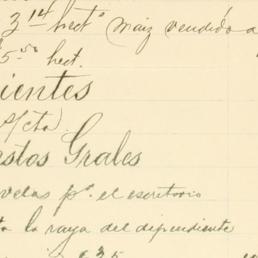 3 14 hect.º maiz vendido a
5.50 hect.
ientes
P/cta).
stos Grales
velas pª. el escritorio
ta la raya del dipendiente